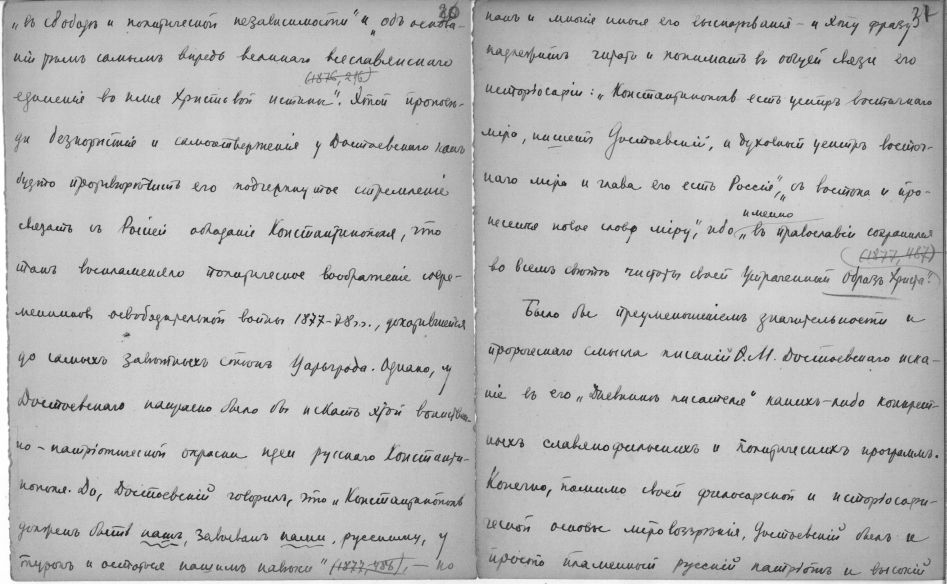 30
„въ свободѣ и политической независимости“ и „объ основа-
ніи тѣмъ самымъ впредь великаго всеславянскаго
(1876, 296)
единенія во имя Христовой истины“. Этой пропове-
ди безкорыстія и самоотверженія у Достоевскаго какъ
будто противорѣчитъ его подчеркнутое стремленіе
связать съ Россіей обладаніе Константинополя, что
такъ воспламеняло политическое воображеніе совре-
менниковъ освободительной войны 1877-78гг., докатившейся
до самыхъ завѣтныхъ стѣнъ Царьграда. Однако, у
Достоевскаго напрасно было бы искать этой воинствен-
но-патріотической окраски идеи русскаго Константи-
нополя. Да, Достоевскій говорилъ, что „Константинополь
долженъ быть нашъ, завоеванъ нами, русскими, у
турокъ и остаться нашимъ навѣки“ (1877, 486), — но
31
какъ и многія иныя его высказыванія – и эту фразу
надлежитъ читать и понимать въ общей связи его
исторіософіи: „Константинополь есть центръ восточнаго
міра, пишетъ Достоевскій, и духовный центръ восточ-
наго міра и глава его есть Россія“, „съ востока и про-
несется новое слово міру“, ибо
именно
„въ православіи сохранился
(1877, 487)
во всемъ свѣтѣ чистоты своей утраченный образъ Христа“.
Было бы преуменьшеніемъ значительности и
пророческаго смысла писаній Ѳ.М. Достоевскаго иска-
ніе въ его „Дневникѣ писателя“ какихъ-либо конкрет-
ныхъ славянофильскихъ и политическихъ программъ.
Конечно, помимо своей философской и исторіософи-
ческой основы міровоззрѣнія, Достоевскій былъ и
просто пламенный русскій патріотъ и высокій